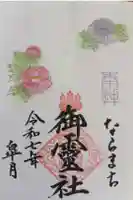 ならまち
御霊社
令和七年
皐月